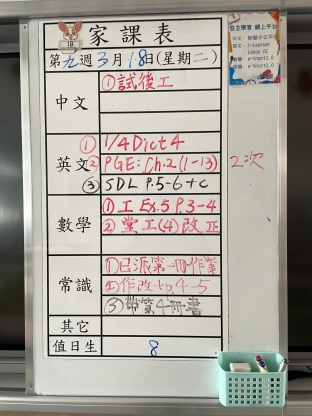 家課表
18
第九週3月18日(星期二)
自主學習 網上平台
中文
①試後工
英文
① 1/4 Dict 4
② PGE: Ch.2 (1-13) 2次
③ SDL P.5-6 + C
數學
① 工 Ex.5 P.3-4
② 堂工(4)改正
常識
①已派第一冊作業
②作改 4-5
③帶第4冊書
其它
值日生
8